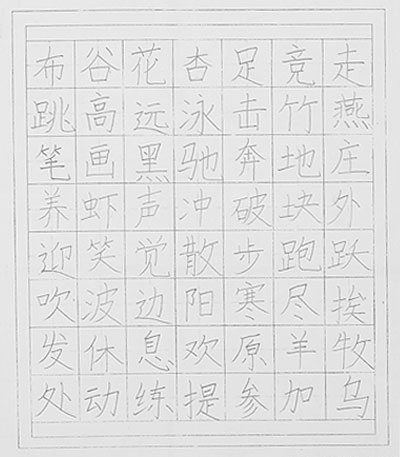 布谷花杏足竞走
跳高远泳击竹燕
笔画黑驰奔地庄
养虾声冲破块外
迎笑觉散步跑跃
吹波边阳寒尽挨
发休息欢原羊牧
处动练提参加乌